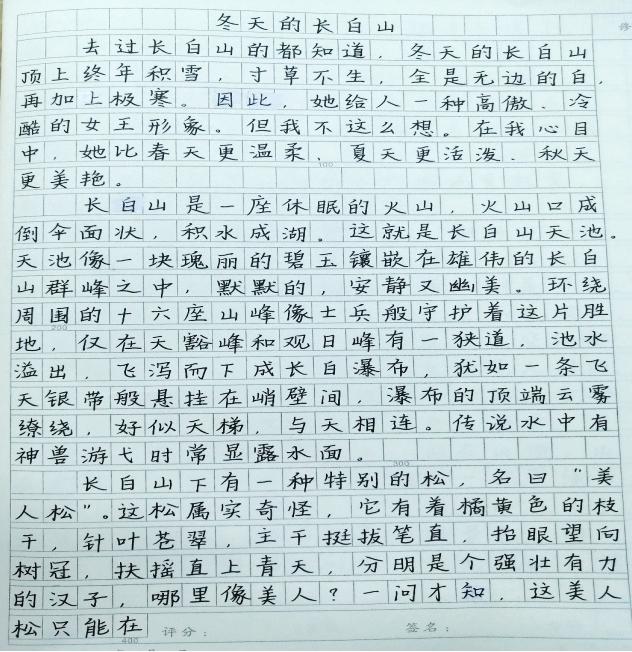 冬天的长白山
去过长白山的都知道，冬天的长白山
顶上终年积雪，寸草不生，全是无边的白，
再加上极寒。因此，她给人一种高傲、冷
酷的女王形象。但我不这么想。在我心目
中，她比春天更温柔、夏天更活泼、秋天
更美艳。
100
长白山是一座休眠的火山，火山口成
倒伞面状，积水成湖。这就是长白山天池。
天池像一块瑰丽的碧玉镶嵌在雄伟的长白
山群峰之中，默默的，安静又幽美。环绕
周围的十六座山峰像士兵般守护着这片胜
200
地，仅在天豁峰和观日峰有一狭道，池水
溢出，飞泻而下成长白瀑布，犹如一条飞
天银带般悬挂在峭壁间，瀑布的顶端云雾
缭绕，好似天梯，与天相连。传说水中有
神兽游弋时常显露水面。
300
长白山下有一种特别的松，名曰“美
人松”。这松属实奇怪，它有着橘黄色的枝
干，针叶苍翠，主干挺拔笔直，抬眼望向
树冠，扶摇直上青天，分明是个强壮有力
的汉子，哪里像美人？一问才知，这美人
松只能在
400
评分： 签名：